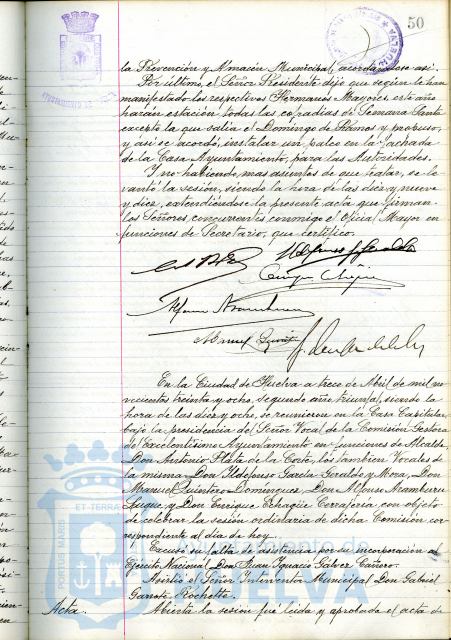 50
la Prevención y Almacén Municipal, acordándose así.
Por último, el Señor Presidente dijo que según le han
manifestado los respectivos Hermanos Mayores, este año
harán estación todas las cofradías de Semana Santa
excepto la que salía el Domingo de Ramos y propuso,
y así se acordó, instalar un palco en la fachada
de la Casa Ayuntamiento, para las Autoridades.
Y no habiendo mas asuntos de que tratar, se le-
vantó la sesión, siendo la hora de las diez y nueve
y diez, extendiéndose la presente acta que firman
los Señores concurrentes conmigo el Oficial Mayor en
funciones de Secretario, que certifico.
En la Ciudad de Huelva a trece de Abril de mil no-
vecientos treinta y ocho, segundo año triunfal, siendo la
hora de las diez y ocho, se reunieron en la Casa Capitular
bajo la presidencia del Señor Vocal de la Comisión Gestora
del Excelentísimo Ayuntamiento en funciones de Alcalde,
Don Antonio Plata de la Corte, los tambien Vocales de
la misma, Don Ildefonso García Geraldo y Mora, Don
Manuel Quintero Domínguez, Don Alfonso Aramburu
Luque, y Don Enrique Echagüe Cerrajería, con objeto
de celebrar la sesión ordinaria de dicha Comisión, cor-
respondiente al día de hoy.
Excusó su falta de asistencia por su incorporación al
Ejército Nacional, Don Juan Ignacio Gálvez Cañero.
Asistió el Señor Interventor Municipal Don Gabriel
Garrote Rochette.
Acta. Abierta la sesión fué leída y aprobada el acta de
ET TERRA
PORTUS MARIS
Ayuntamiento de
HUELVA